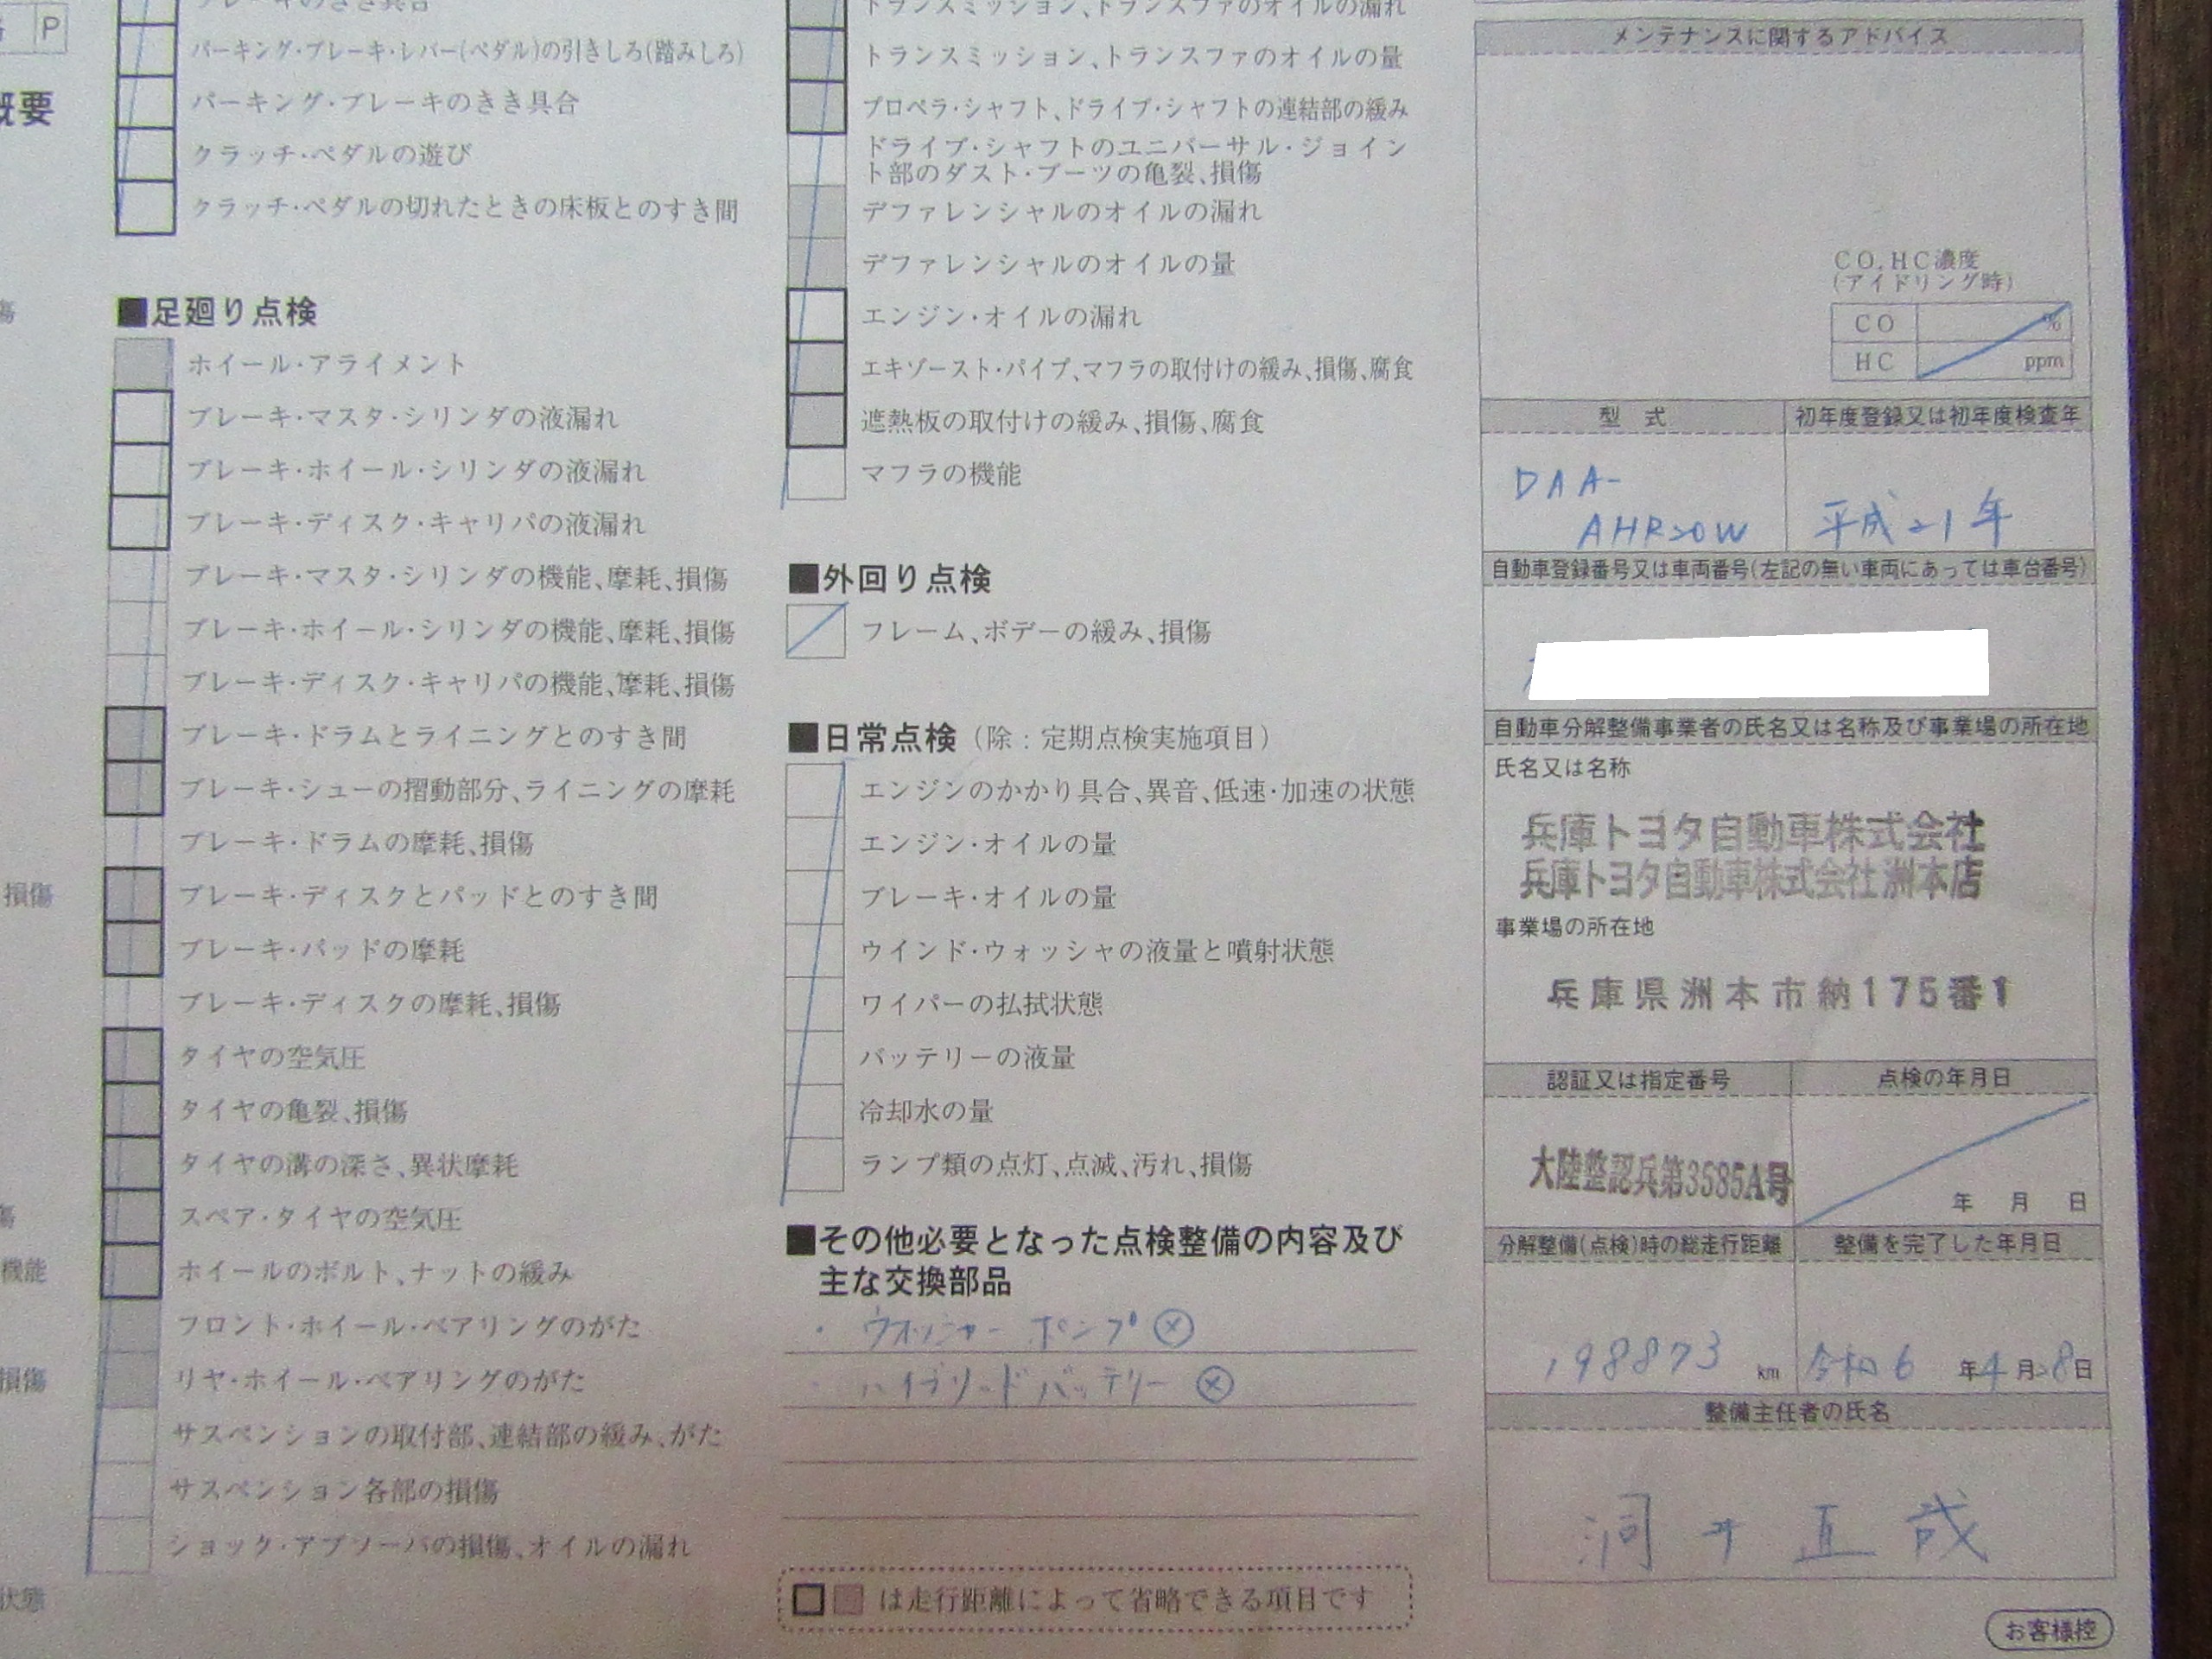 P
概要
ブレーキのきき具合
パーキング・ブレーキ・レバー(ペダル)の引きしろ(踏みしろ)
パーキング・ブレーキのきき具合
クラッチ・ペダルの遊び
クラッチ・ペダルの切れたときの床板とのすき間
■足廻り点検
ホイール・アライメント
ブレーキ・マスタ・シリンダの液漏れ
ブレーキ・ホイール・シリンダの液漏れ
ブレーキ・ディスク・キャリパの液漏れ
ブレーキ・マスタ・シリンダの機能、摩耗、損傷
ブレーキ・ホイール・シリンダの機能、摩耗、損傷
ブレーキ・ディスク・キャリパの機能、摩耗、損傷
ブレーキ・ドラムとライニングとのすき間
ブレーキ・シューの摺動部分、ライニングの摩耗
ブレーキ・ドラムの摩耗、損傷
損傷
ブレーキ・ディスクとパッドとのすき間
ブレーキ・パッドの摩耗
ブレーキ・ディスクの摩耗、損傷
タイヤの空気圧
タイヤの亀裂、損傷
タイヤの溝の深さ、異状摩耗
スペア・タイヤの空気圧
機能
ホイールのボルト、ナットの緩み
フロント・ホイール・ベアリングのがた
損傷
リヤ・ホイール・ベアリングのがた
サスペンションの取付部、連結部の緩み、がた
サスペンション各部の損傷
ショック・アブソーバの損傷、オイルの漏れ
状態
トランスミッション、トランスファのオイルの漏れ
トランスミッション、トランスファのオイルの量
プロペラ・シャフト、ドライブ・シャフトの連結部の緩み
ドライブ・シャフトのユニバーサル・ジョイン
ト部のダスト・ブーツの亀裂、損傷
デファレンシャルのオイルの漏れ
デファレンシャルのオイルの量
エンジン・オイルの漏れ
エキゾースト・パイプ、マフラの取付けの緩み、損傷、腐食
遮熱板の取付けの緩み、損傷、腐食
マフラの機能
■外回り点検
フレーム、ボデーの緩み、損傷
■日常点検(除:定期点検実施項目)
エンジンのかかり具合、異音、低速・加速の状態
エンジン・オイルの量
ブレーキ・オイルの量
ウインド・ウォッシャの液量と噴射状態
ワイパーの払拭状態
バッテリーの液量
冷却水の量
ランプ類の点灯、点滅、汚れ、損傷
■その他必要となった点検整備の内容及び
主な交換部品
・ウオッシャー ポンプ ⊗
・ハイブリッドバッテリー ⊗
は走行距離によって省略できる項目です
メンテナンスに関するアドバイス
CO,HC濃度
(アイドリング時)
CO %
HC ppm
型 式
初年度登録又は初年度検査年
DAA-
AHR20W
平成21年
自動車登録番号又は車両番号(左記の無い車両にあっては車台番号)
自動車分解整備事業者の氏名又は名称及び事業場の所在地
氏名又は名称
兵庫トヨタ自動車株式会社
兵庫トヨタ自動車株式会社洲本店
事業場の所在地
兵庫県洲本市納175番1
認証又は指定番号
点検の年月日
大陸整認兵第3585A号
年 月 日
分解整備(点検)時の総走行距離
整備を完了した年月日
198873 km
令和6年4月28日
整備主任者の氏名
洞井 直哉
お客様控